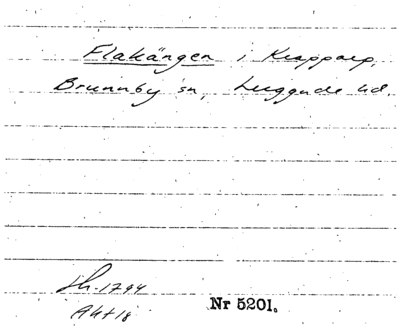 Flakängen i Krapparp,
Brunnby sn, Luggude hd.
Sk. 1794
Akt 18
Nr 5201.